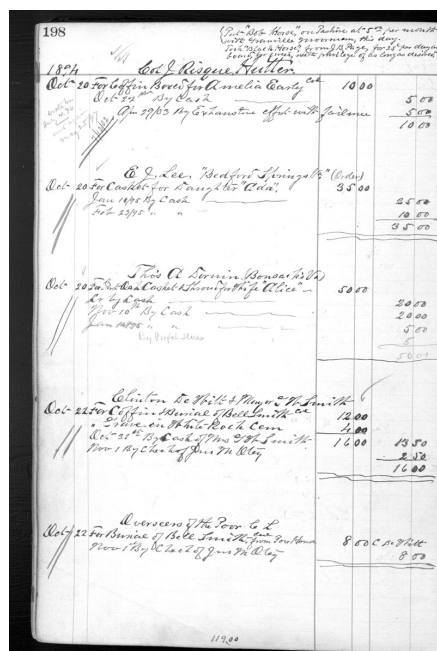 198
Put "Dot Horse", on Pasture at 5.00 per month
with Granville this day.
Took "Black Horse" from J.B. Page, for 25¢ per day and
board for with privilege of as long as desired
1894 Col J. Risque Hutter
Oct 20 For Coffin Boxed for Amelia Early col 10 00
Oct 27th By Cash 5 00
Apr 29/03 By Exhaustive effort with failure 5 00
10 00
E. J. Lee. "Bedford Springs Va" (Order)
Oct 20 For Casket for Daughter "Ada". 35 00
Jan 14/95 By Cash 25 00
Feb 23/95 " " 10 00
35 00
Thos A Dornin. (Bonsacks Va)
Oct 20 For Casket & Shroud for Wife "Alice" 50 00
Cr by Cash 20 00
Nov 10th By Cash 20 00
Jan " " 5 00
By 5
50 00
Clinton DeWitt & Mayor & W. Smith
Oct 22 For Coffin & Burial of Bell Smith col 12 00
" Grave in White Rock Cem 4 00
Oct By Cash of Mrs Smith 16 00 13 50
Nov 1 By Check of Jno M Otey 2 50
16 00
Overseers of the Poor. C L
Oct 22 For Burial of Bell Smith from Poor House 8 00 C DeWitt
Nov 1 By Check of Jno M Otey 8 00
119.00